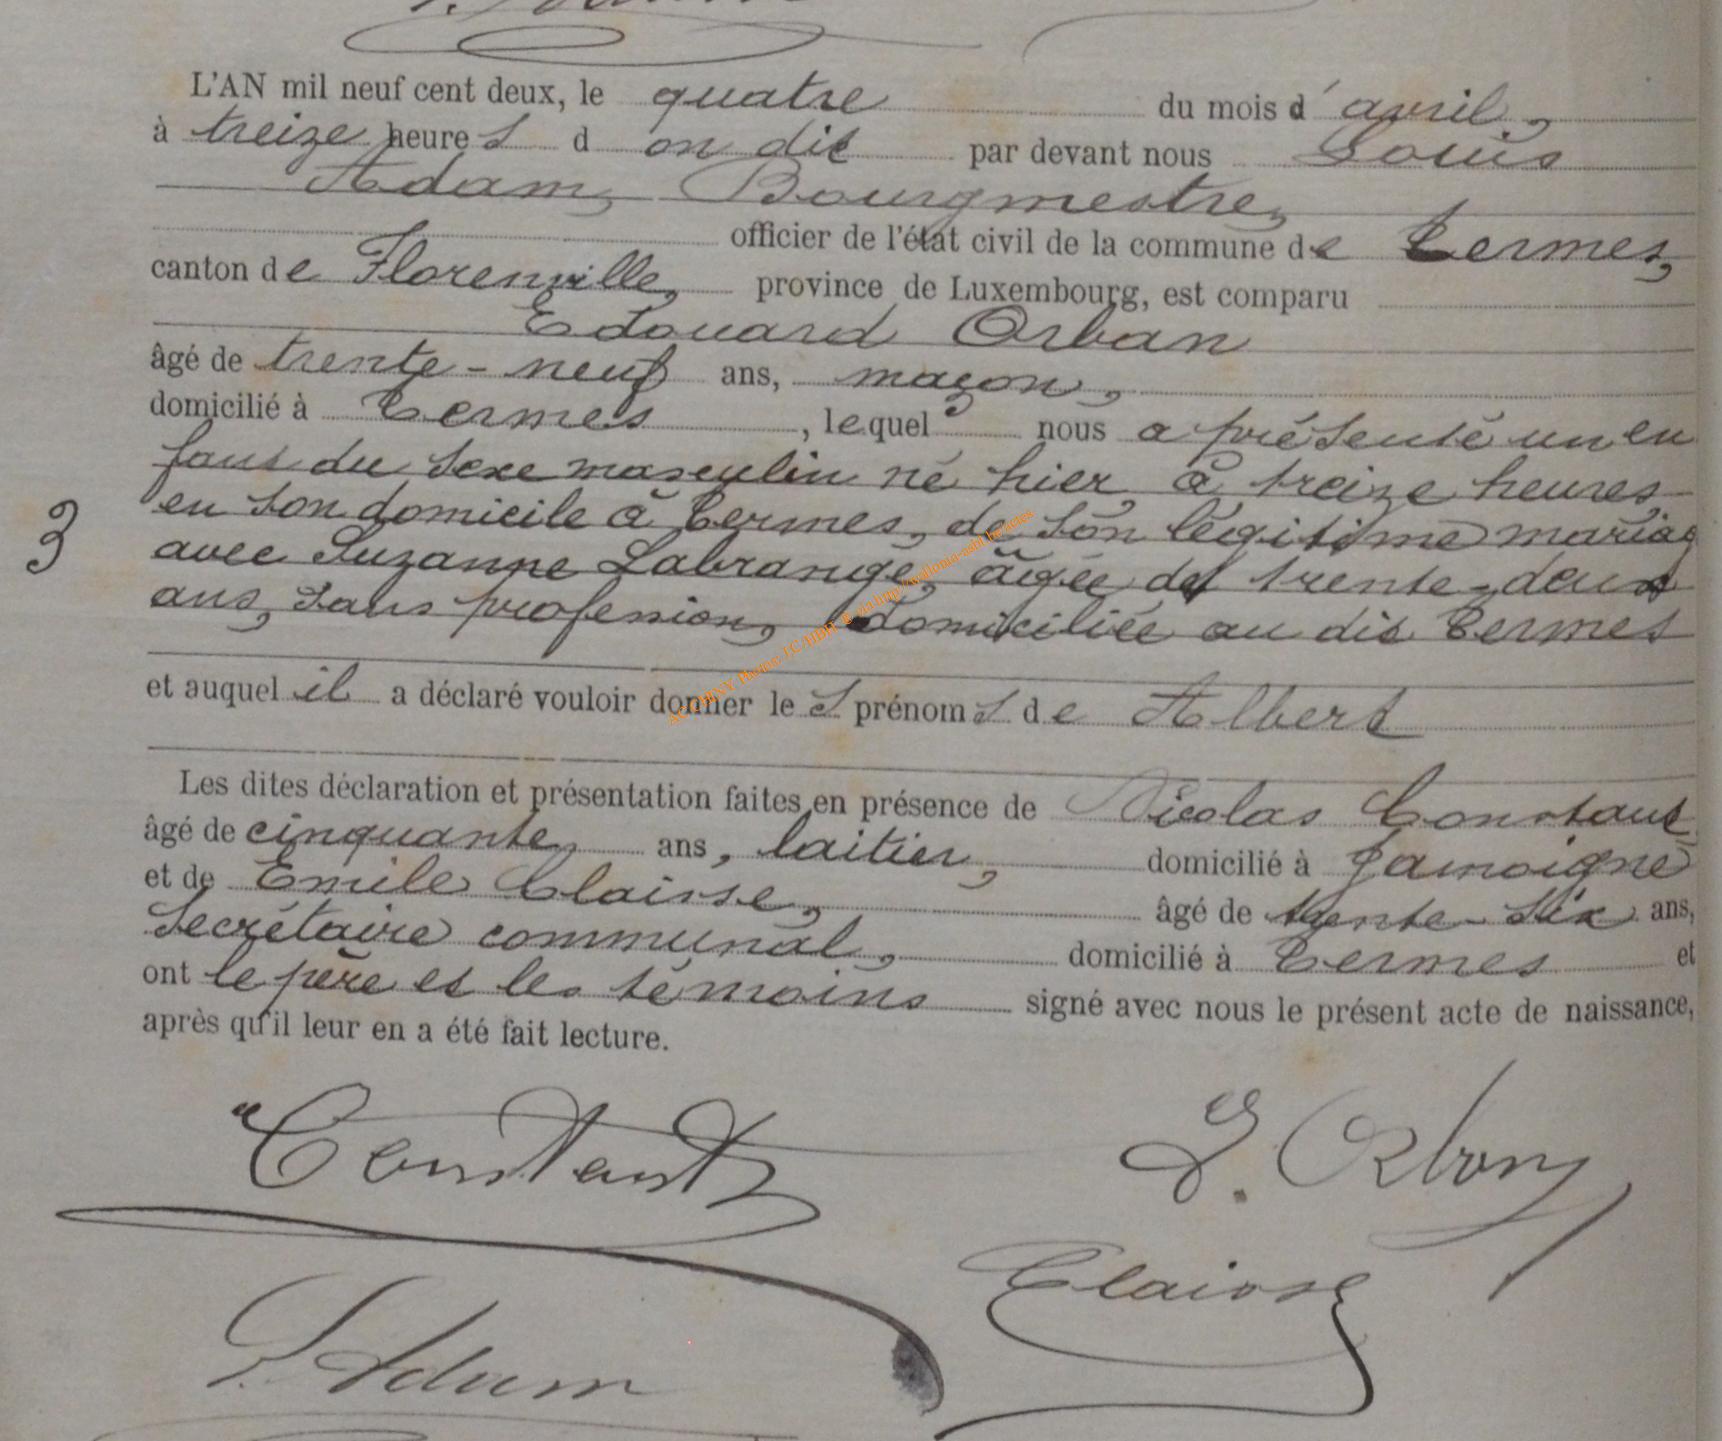 L'AN mil neuf cent deux, le quatre du mois d' avril,
à treize heures d on dit par devant nous Louis
Adam, Bourgmestre,
officier de l'état civil de la commune de Termes,
canton de Florenville, province de Luxembourg, est comparu
Edouard Orban
âgé de trente-neuf ans, maçon,
domicilié à Termes, lequel nous a présenté un en
fant du sexe masculin né hier à treize heures,
3 en son domicile à Termes, de son légitime mariag
avec Suzanne Labrange, âgée de trente-deux
ans, sans profession, domiciliée au dit Termes
et auquel il a déclaré vouloir donner les prénoms de Albert
Les dites déclaration et présentation faites en présence de Nicolas Constant
âgé de cinquante ans, laitier, domicilié à Jamoigne
et de Emile Claisse, âgé de trente-six ans,
Secrétaire communal, domicilié à Termes et
ont le père et les témoins signé avec nous le présent acte de naissance,
après qu'il leur en a été fait lecture.
Constant E. Orban
Claisse
L. Adam